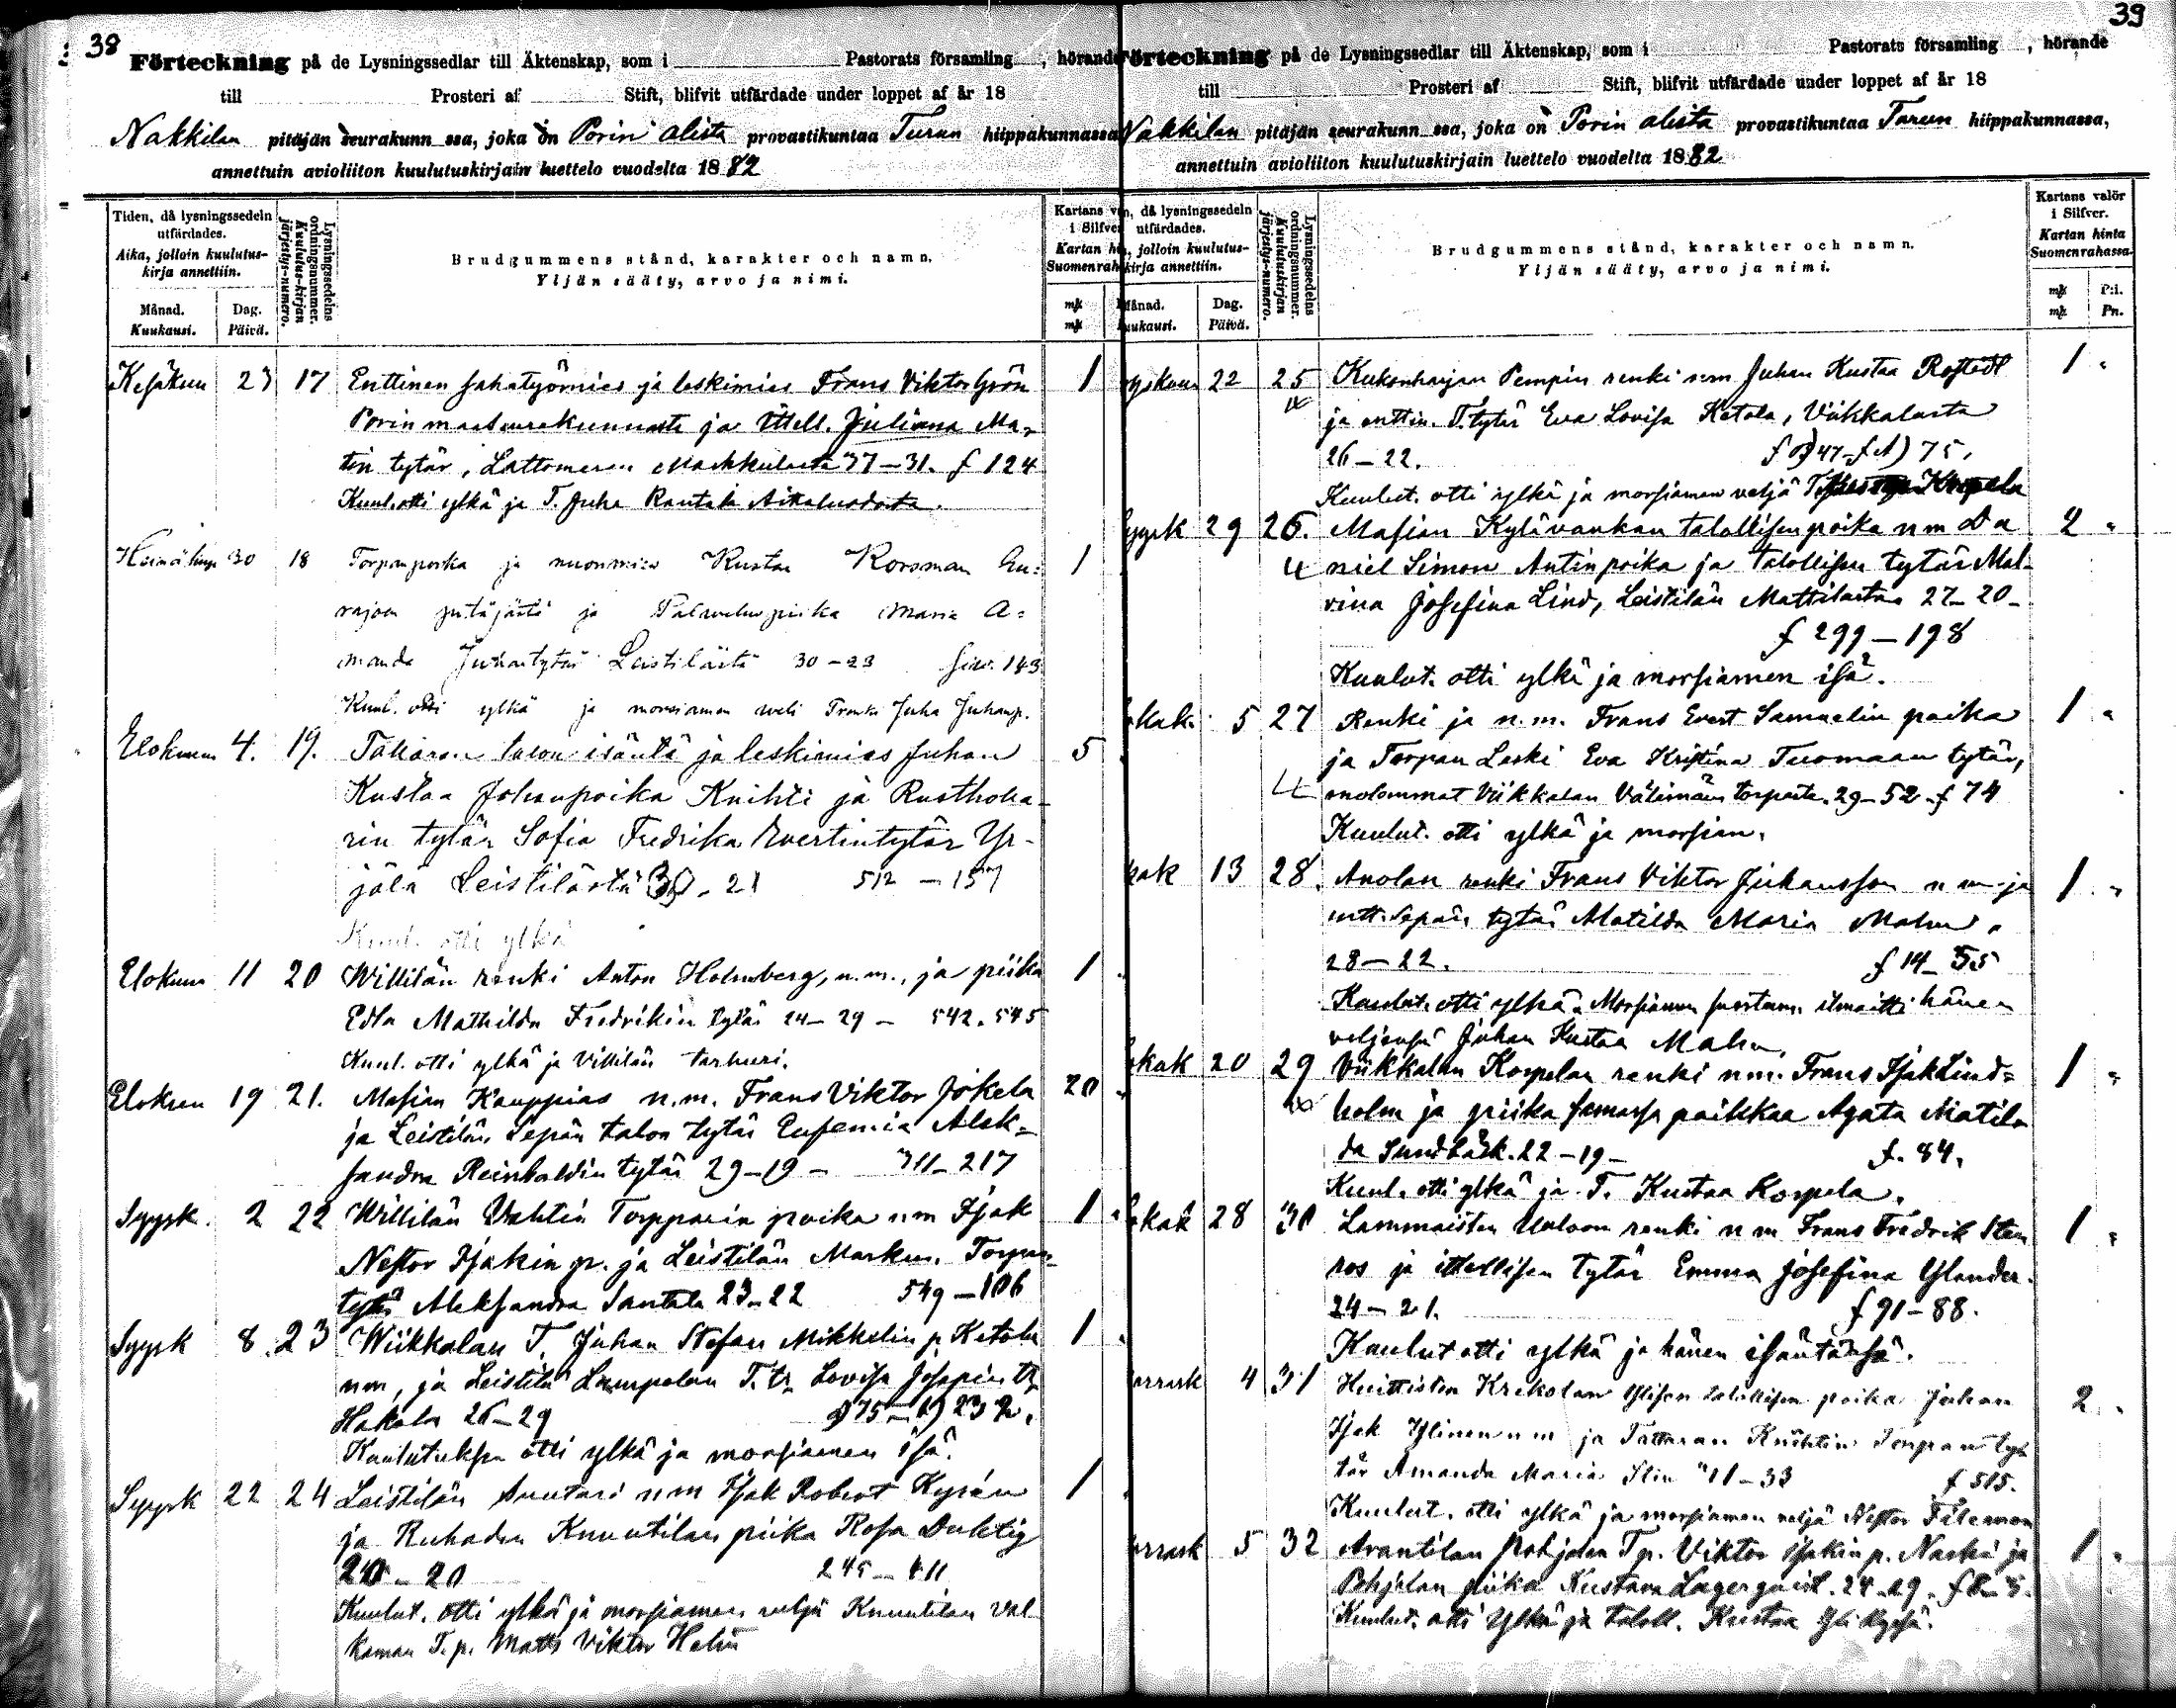 38
Förteckning på de Lysningssedlar till Äktenskap, som i Pastorats församling , hörande
till Prosteri af Stift, blifvit utfärdade under loppet af år 18
Nakkilan pitäjän seurakunn ssa, joka on Porin alista provastikuntaa Turun hiippakunnassa
annettuin avioliiton kuulutuskirjain luettelo vuodelta 1882
Tiden, då lysningssedeln utfärdades.
Aika, jolloin kuulutus-kirja annettiin.
Månad. Dag.
Kuukausi. Päivä.
Lysningssedelns ordningsnummer.
Kuulutuskirjan järjestys-numero.
Brudgummens stånd, karakter och namn.
Yljän sääty, arvo ja nimi.
Kartans
i Silfver
Kartan
Suomenrah
mk
mk
Kesäkuu 23 17 Enttinen sahatyömies ja leskimies Frans Viktor Grön 1
Porin maaseurakunnasta ja Ittell. Juliana Ma-
tin tytär, Lattomeren Markkulasta 37-31. f 124
Kuul. otti ylkä ja T. Juha Rantala
30 18 Torpanpoika ja nuorimies Kustaa Korsman Eu= 1
rajoen pitäjästä ja Palveluspiika Maria A=
manda Juhantytär Leistilästä 30-23 143
Kuul. otti ylkä ja morsiamen veli Juha Juhanp.
Elokuun 4. 19. talon isäntä ja leskimies Juhan 5
Kustaa Johanpoika Knihti ja Rusthola-
rin tytär Sofia Fredrika Evertintytär Yr-
jölä Leistilästä 30-21 512-157
Kuul. otti ylkä
Elokuu 11 20 Willilän renki Anton Holmberg, n.m., ja piika 1
Edla Mathilda Fredrikin tytär 24-29- 542. 545
Kuul. otti ylkä ja Villilän tarhuri.
Elokuu 19 21. Masian Kauppias n.m. Frans Viktor Jokela 20
ja Leistilän Sepän talon tytär Eufemia Alek-
sandra Reinholdin tytär 29-19- 311-217
Syysk. 2 22 Willilän Vahtin Torpparin poika nm Isak 1
Nestor Isakin p. ja Leistilän Torpan
tytär Aleksandra Santala 23-22 549-106
Syysk 8 23 Wiikkalan T. Juhan Stefan Mikkelin p. Ketola 1
nm, ja Leistilä Lampolan T. tr. Lovisa Josepin tr.
Hakala 26-29 75- 232.
Kuulutuksen otti ylkä ja morsiamen isä.
Syysk 22 24 Leistilän Suutari nm Isak Robert Kysén 1
ja Ruhaden Knuutilan piika Rosa Duktig
20-20 245-411
Kuulut. otti ylkä ja morsiamen veljä Knuutilan Val
kaman T.p. Matts Viktor Helin
39
Förteckning på de Lysningssedlar till Äktenskap, som i Pastorats församling , hörande
till Prosteri af Stift, blifvit utfärdade under loppet af år 18
Nakkilan pitäjän seurakunn ssa, joka on Porin alista provastikuntaa Turun hiippakunnassa,
annettuin avioliiton kuulutuskirjain luettelo vuodelta 1882
n, då lysningssedeln utfärdades.
jolloin kuulutus-kirja annettiin.
Månad. Dag.
uukausi. Päivä.
Lysningssedelns ordningsnummer.
Kuulutuskirjan järjestys-numero.
Brudgummens stånd, karakter och namn.
Yljän sääty, arvo ja nimi.
Kartans valör i Silfver.
Kartan hinta Suomenrahassa.
mk P:i.
mk Pn.
yyskuu 22 25 Kukonharjan Pempin renki nm Juhan Kustaa Rostedt 1 "
ja enttin. T. tytär Eva Lovisa Ketola, Viikkalasta
26-22. 47- 75.
Kuulut. otti ylkä ja morsiamen veljä
Syysk 29 26. Masian Kylävankan talollisen poika nm Da 2 "
niel Simon Antin poika ja talollisen tytär Mal-
vina Josefina Lind, Leistilän Mattilasta 27-20-
f 299-198
Kuulut. otti ylkä ja morsiamen isä.
okak. 5 27 Renki ja n.m. Frans Evert Samuelin poika 1 "
ja Torpan Leski Eva Kristina Tuomaan tytär,
molemmat Viikkalan Välimäen torpasta. 29-52. f 74
Kuulut. otti ylkä ja morsian.
kak 13 28. Anolan renki Frans Viktor Juhansson nm ja 1 "
entt. Sepän tytär Matilda Maria Malm.
28-22. f 14-55
Kuulut. otti ylkä. Morsiamen suostum. ilmoitti hänen
veljensä Juhan Kustaa Malm.
okak 20 29 Viikkalan Korpelan renki nm. Frans Isak Lind= 1 "
holm ja piika samassa paikkaa Agata Matil
da Sundbäck. 22-19- f. 84.
Kuul. otti ylkä ja T. Kustaa Korpela.
okak 28 30 Lammaisten renki nm Frans Fredrik Sten 1 "
ros ja ittellisen tytär Emma Josefina Ylander.
24-21. f 91-88.
Kuulut otti ylkä ja hänen isäntänsä.
arrask 4 31 Huittisten Krekolan Ylisen talollisen poika Juhan 2 "
Isak Ylinen nm ja Tattaran Knihtin Torpan tyt
tär Amanda Maria 33 f 515.
Kuulut. otti ylkä ja morsiamen veljä Nestor Filemon
arrask 5 32 Arantilan Pohjolan T.p. Viktor Isakin p. Naski ja 1 "
Pohjolan piika Kustava Lagerqvist. 24-29.
Kuulut. otti Ylkä ja taloll. Kustaa